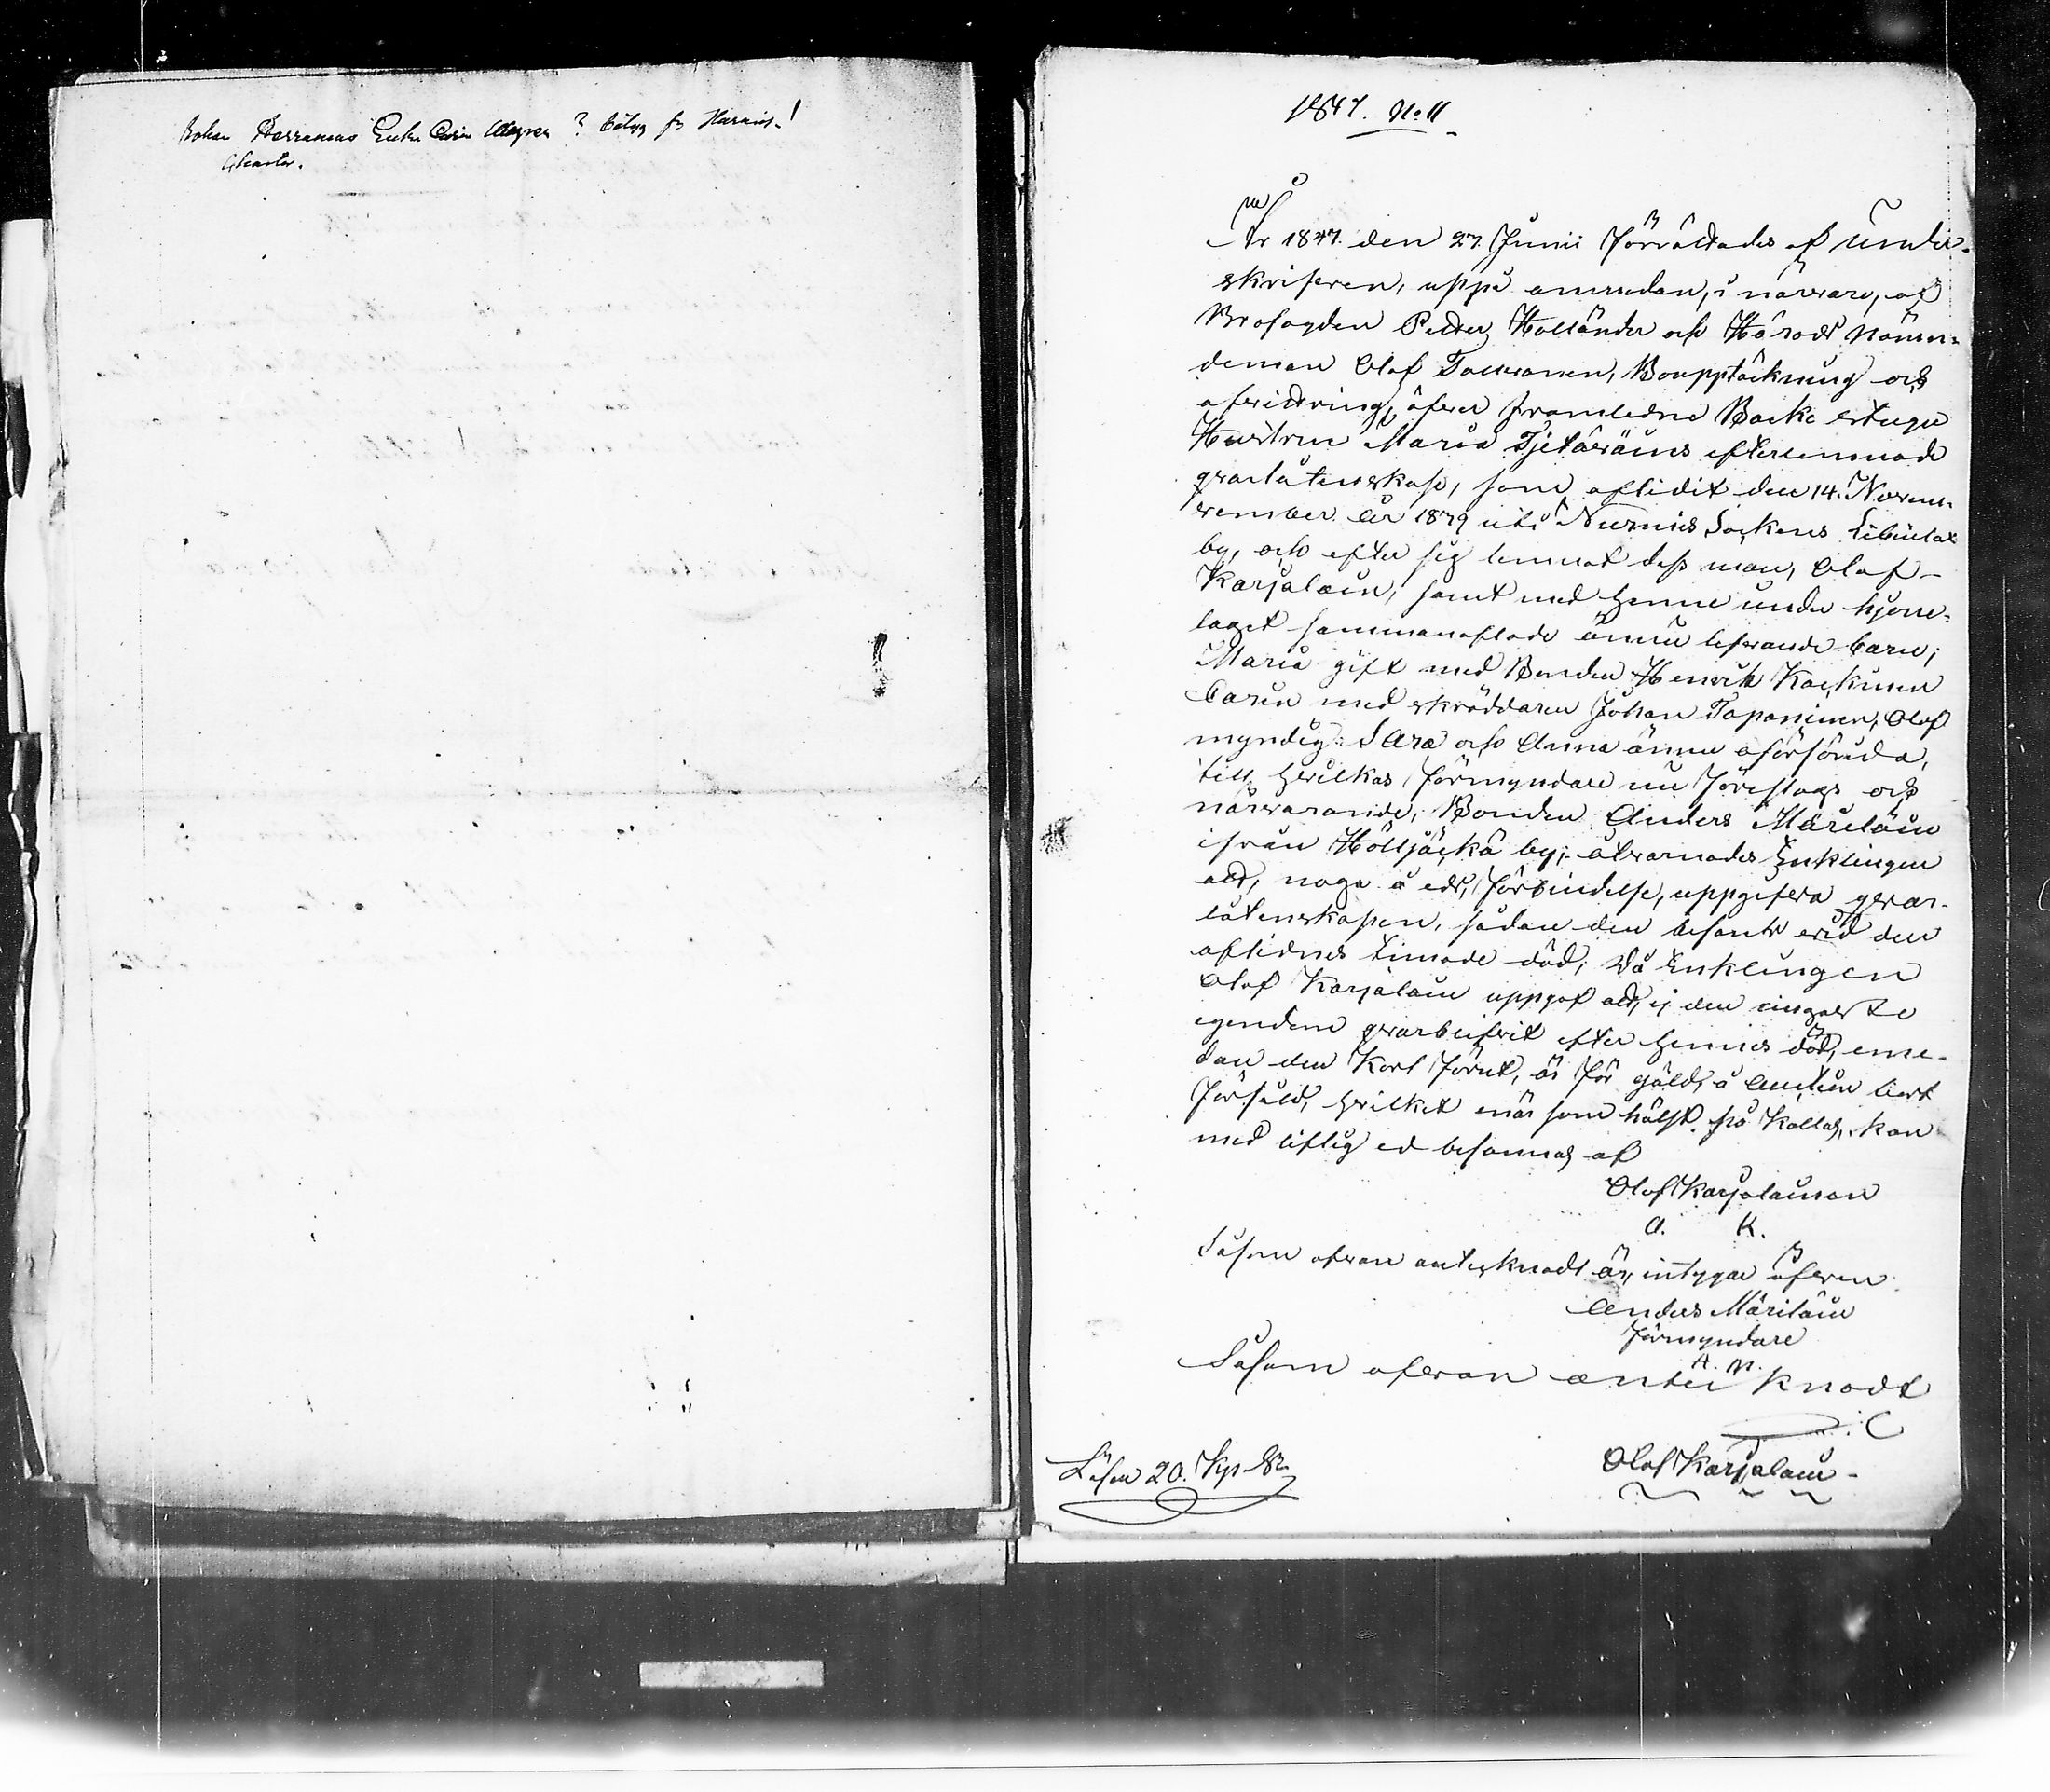 Enka Carin
1847. No 11
År 1847. den 27. Junii Förrättades af under-
skrifven, uppå anmodan, i närvaro, af
Brofogden Petter Holländer och Härads Nämn=
deman Olof Tavonen, Bouppteckning och
afvittring, öfver framledne Backstugu
Hustrun Maria Tjetäväins efterlemnade
qvarlåtenskap, som aflidit den 14. Novem-
vember år 1879 uti Nurmis Sockens
by, och efter sig lemnat dess man, Olof
Karjalain, samt med henne under hjone-
laget sammanaflade ännu lefvande barn;
Maria gift med Bonden Henrik Kackinen
Carin med skräddaren Johan Tapaninen, Olof
myndig: Sara och Anna ännu oförsörida,
till hvilkas Förmyndare nu Föreslogs och
närvarande, Bonden Anders Märiläin
ifrån Höljäckä by; åtvarnades Enklingen
att, noga å eds Förbindelse, uppgifva qvar-
låtenskapen, sådan den befants vid den
aflidnes timade död; Då Enklingen
Olof Karjalain uppgaf att, ej den ringaste
egendom qvarblifvit efter hennes död, eme-
dan den Kort Förut, är För gäld å auction bort
Försåld, hvilket när som hälst på Kallas, kan
med liflig ed besannas af
Olof Karjalainen
O. K.
Såsom ofvan antecknadt är, intygar äfven
Anders Märiläin
Förmyndare
A. M.
Såsom ofvan anteiknadt
Olof Karjalain